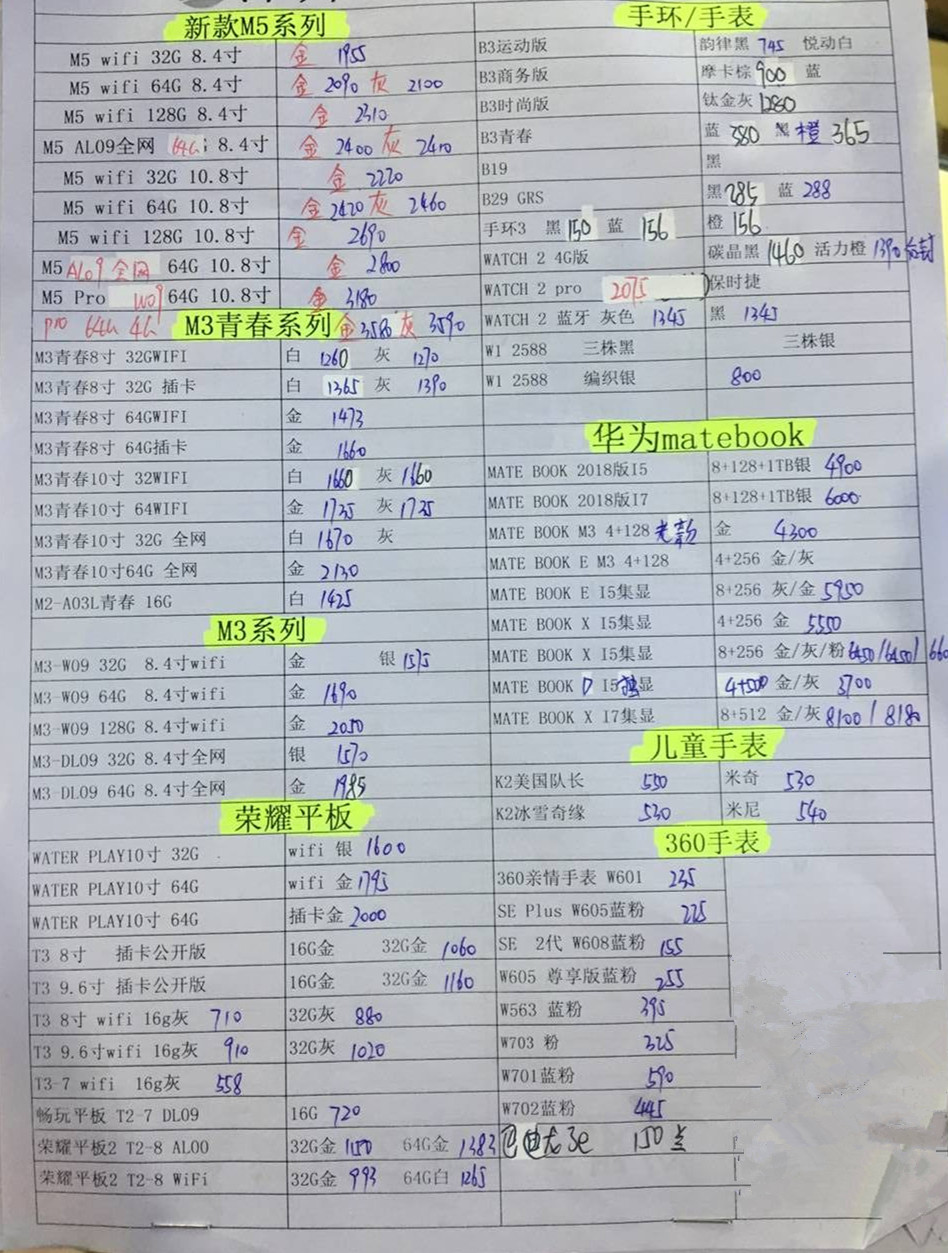 新款M5系列
M5 wifi 32G 8.4寸 金 1955
M5 wifi 64G 8.4寸 金 2090 灰 2100
M5 wifi 128G 8.4寸 金 2310
M5 AL09全网 64G 8.4寸 金 2400 灰 2410
M5 wifi 32G 10.8寸 金 2220
M5 wifi 64G 10.8寸 金 2420 灰 2460
M5 wifi 128G 10.8寸 金 2690
M5 AL09 全网 64G 10.8寸 金 2800
M5 Pro W09 64G 10.8寸 金 3180
pro 64G 4G 金 3580 灰 3590
M3青春系列
M3青春8寸 32GWIFI 白 1260 灰 1270
M3青春8寸 32G 插卡 白 1365 灰 1390
M3青春8寸 64GWIFI 金 1473
M3青春8寸 64G插卡 金 1660
M3青春10寸 32WIFI 白 1660 灰 1660
M3青春10寸 64WIFI 金 1725 灰 1725
M3青春10寸 32G 全网 白 1670 灰
M3青春10寸64G 全网 金 2130
M2-A03L青春 16G 白 1425
M3系列
M3-W09 32G 8.4寸wifi 金 银 1515
M3-W09 64G 8.4寸wifi 金 1690
M3-W09 128G 8.4寸wifi 金 2050
M3-DL09 32G 8.4寸全网 银 1570
M3-DL09 64G 8.4寸全网 金 1985
荣耀平板
WATER PLAY10寸 32G wifi 银 1600
WATER PLAY10寸 64G wifi 金 1795
WATER PLAY10寸 64G 插卡金 2000
T3 8寸 插卡公开版 16G金 32G金 1060
T3 9.6寸 插卡公开版 16G金 32G金 1160
T3 8寸 wifi 16g灰 710 32G灰 880
T3 9.6寸wifi 16g灰 910 32G灰 1020
T3-7 wifi 16g灰 558
畅玩平板 T2-7 DL09 16G 720
荣耀平板2 T2-8 AL00 32G金 1150 64G金 1383
荣耀平板2 T2-8 WiFi 32G金 993 64G白 1265
手环/手表
B3运动版 韵律黑 745 悦动白
B3商务版 摩卡棕 900 蓝
B3时尚版 钛金灰 1280
B3青春 蓝 380 黑 橙 365
B19 黑
B29 GRS 黑 285 蓝 288
手环3 黑 150 蓝 156 橙 156
WATCH 2 4G版 碳晶黑 1460 活力橙 1390
WATCH 2 pro 2075 保时捷
WATCH 2 蓝牙 灰色 1345 黑 1345
W1 2588 三株黑 三株银
W1 2588 编织银 800
华为matebook
MATE BOOK 2018版I5 8+128+1TB银 4900
MATE BOOK 2018版I7 8+128+1TB银 6000
MATE BOOK M3 4+128 金 4300
MATE BOOK E M3 4+128 4+256 金/灰
MATE BOOK E I5集显 8+256 灰/金 5950
MATE BOOK X I5集显 4+256 金 5550
MATE BOOK X I5集显 8+256 金/灰/粉 6450/6450/
MATE BOOK D I5独显 4+500 金/灰 3700
MATE BOOK X I7集显 8+512 金/灰 8100/8180
儿童手表
K2美国队长 550 米奇 530
K2冰雪奇缘 530 米尼 540
360手表
360亲情手表 W601 235
SE Plus W605蓝粉 225
SE 2代 W608蓝粉 155
W605 尊享版蓝粉 255
W563 蓝粉 395
W703 粉 325
W701蓝粉 590
W702蓝粉 445
龙 3e 150